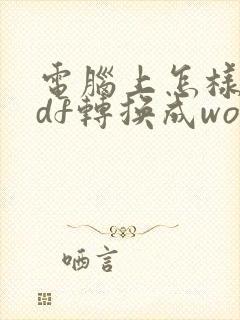 電腦上怎樣
df轉換成wo
哂言